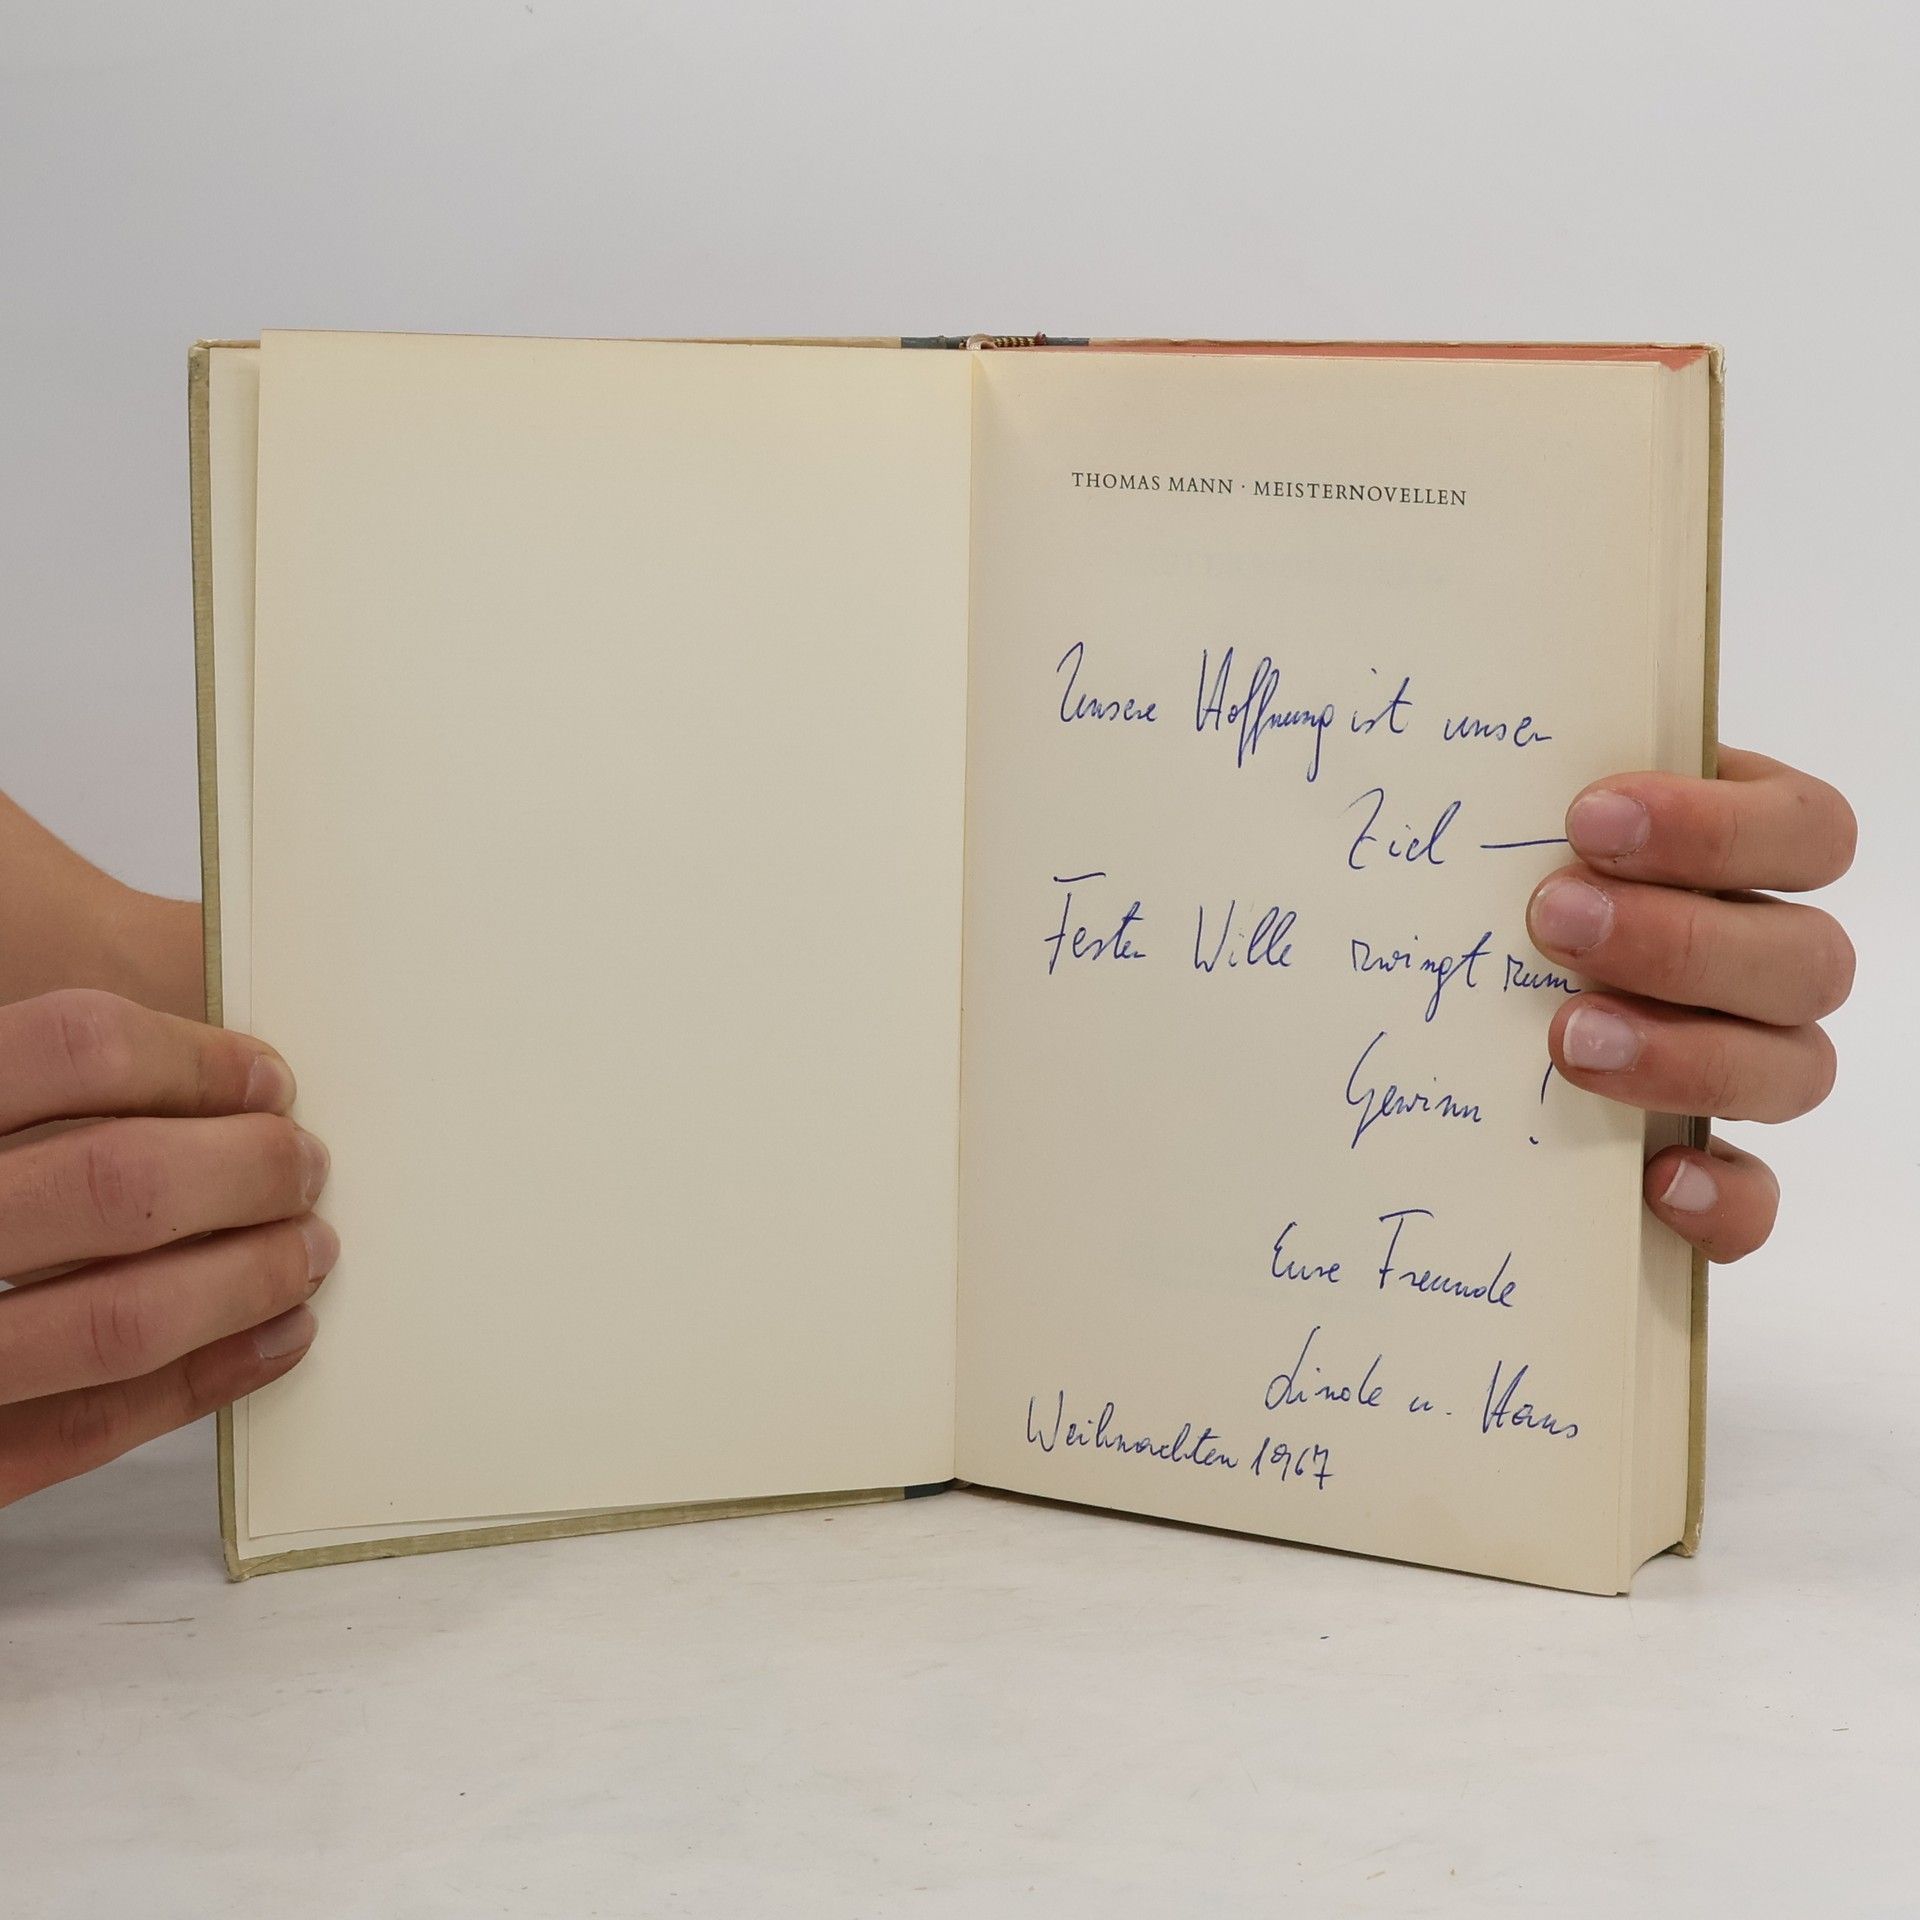 THOMAS MANN · MEISTERNOVELLEN
Unsere Hoffnung ist unser
Ziel —
Fester Wille zwingt zum
Gewinn !
Eure Freunde
Linde u. Hans
Weihnachten 1967